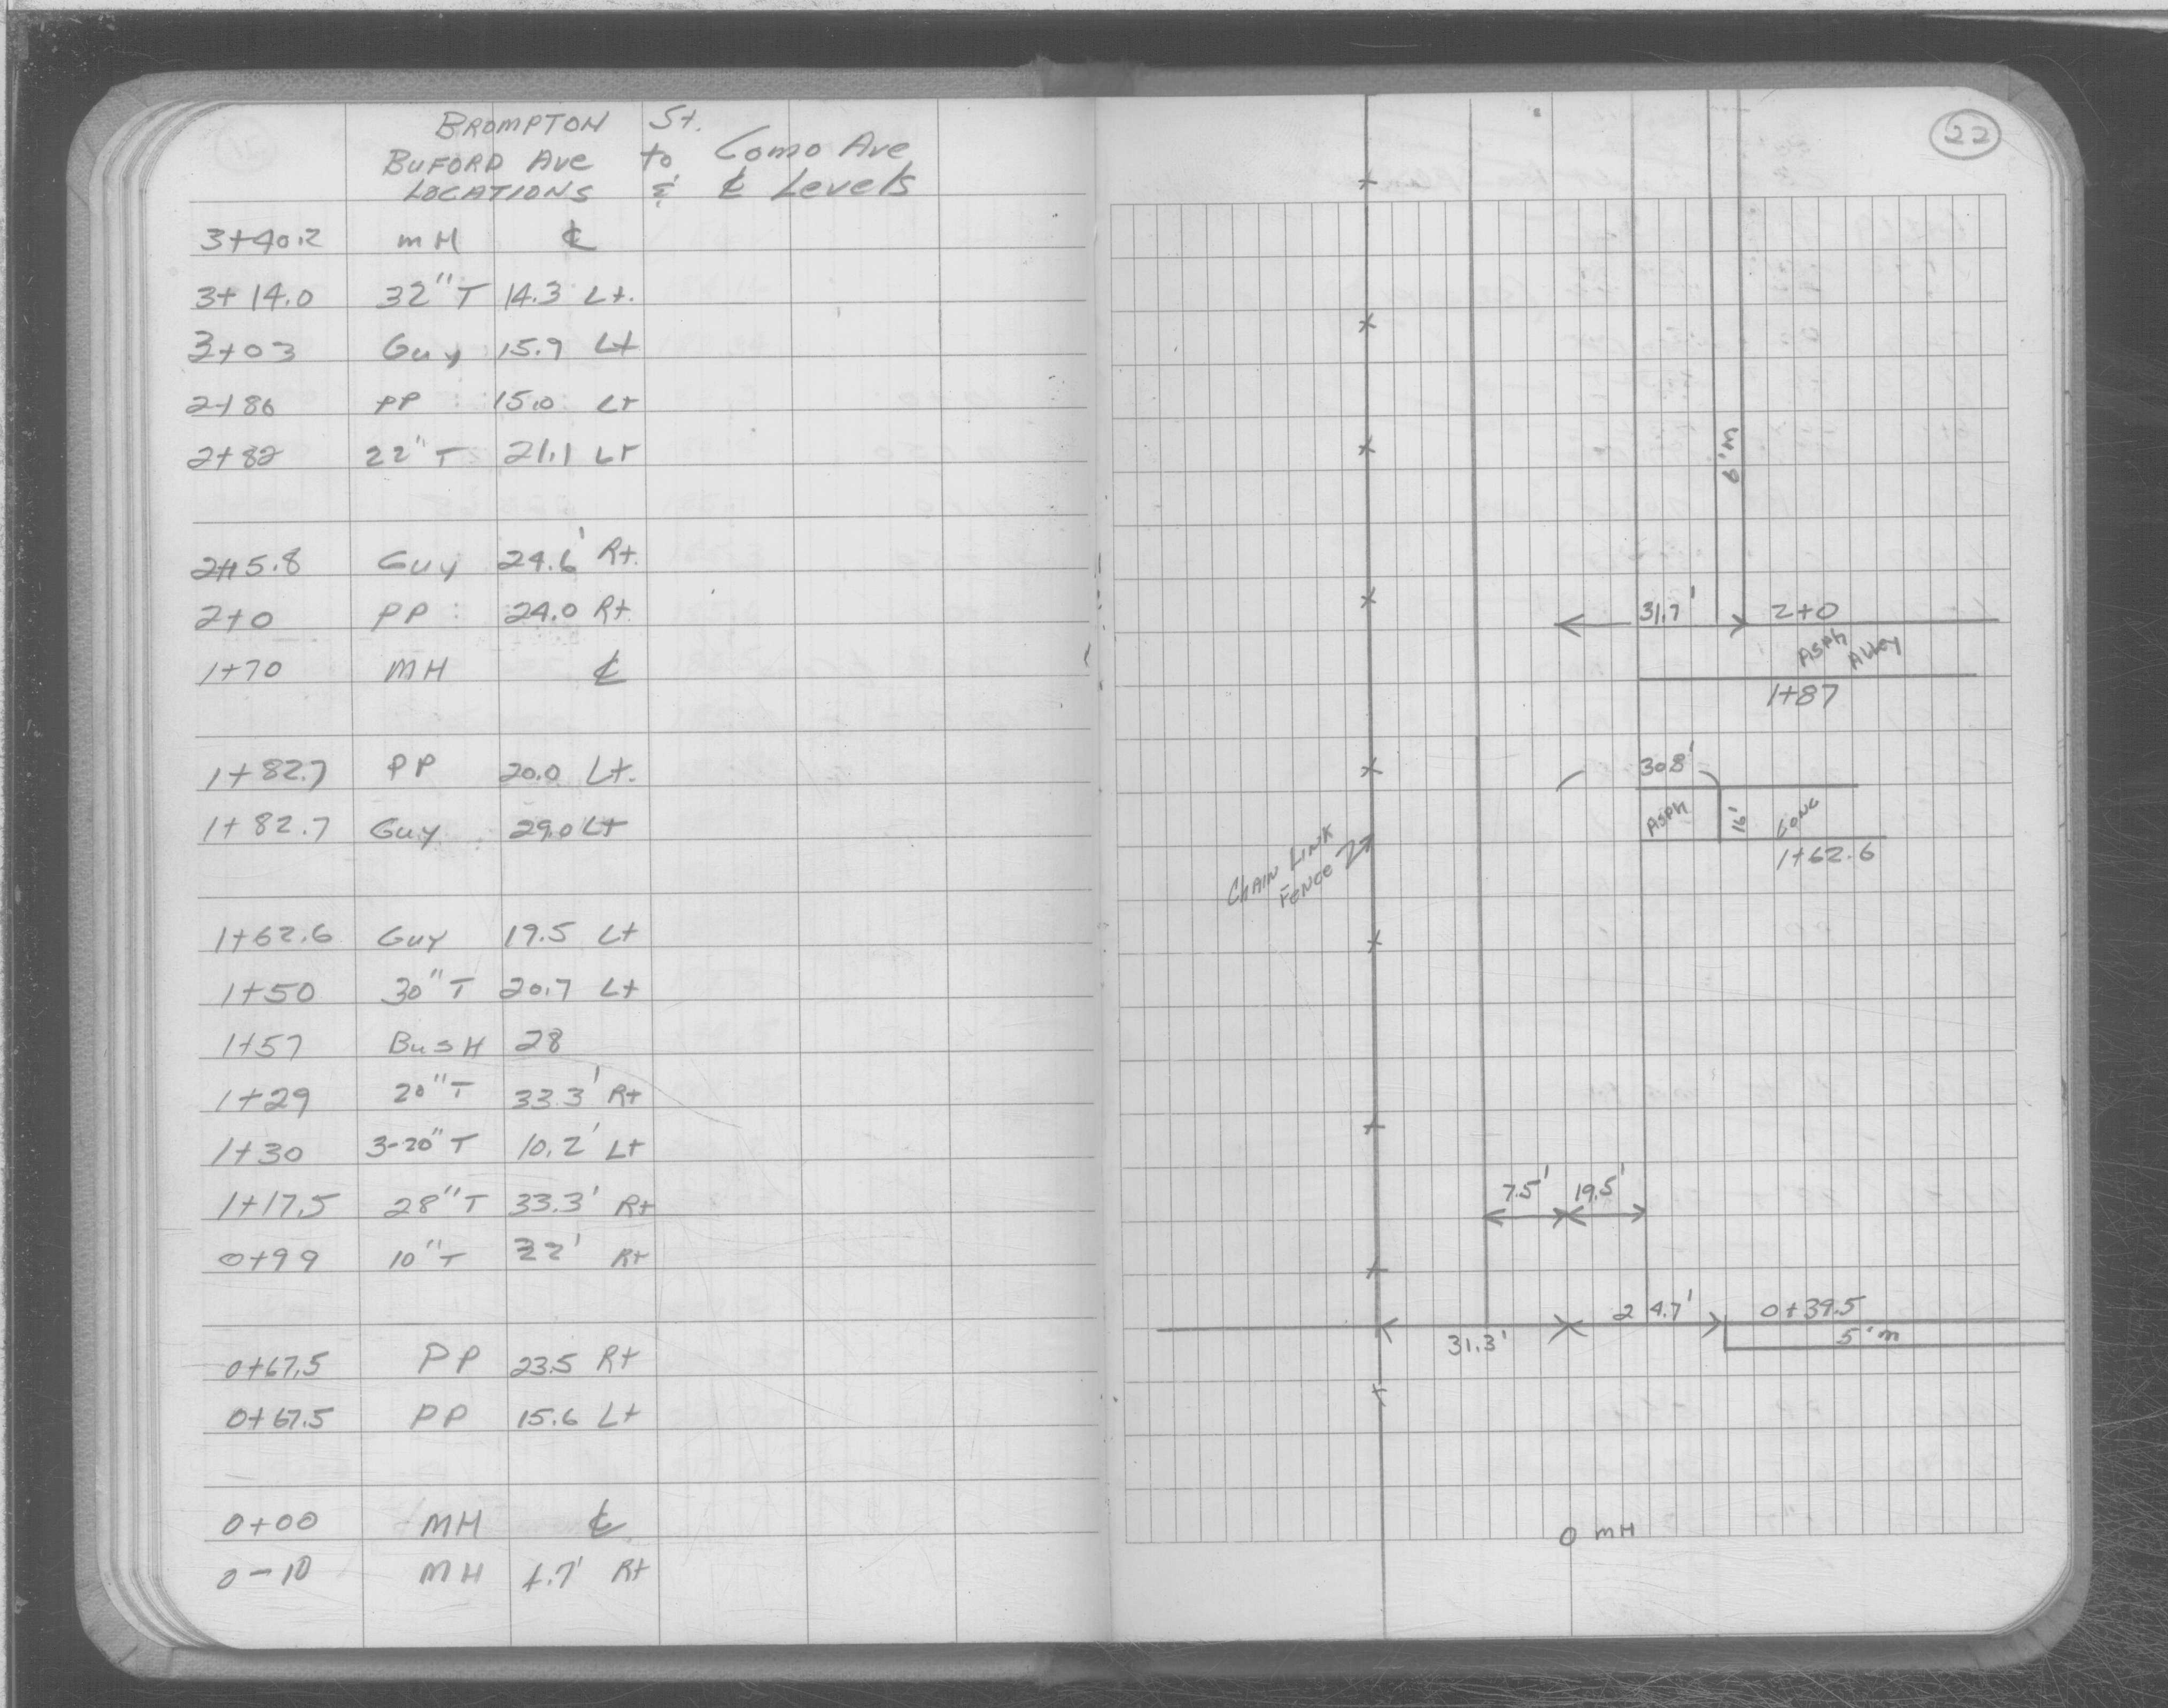 BROMPTON St.
BUFORD Ave to Como Ave
LOCATIONS & ℄ Levels
3+40.2 mH ℄
3+14.0 32"T 14.3 Lt.
3+03 Guy 15.9 Lt
2+86 PP 15.0 Lt
2+82 22"T 21.1 Lt
2+15.8 Guy 24.6' Rt.
2+0 PP 24.0 Rt.
1+70 MH ℄
1+82.7 PP 20.0 Lt.
1+82.7 Guy 29.0 Lt
1+62.6 Guy 19.5 Lt
1+50 30"T 20.7 Lt
1+57 BusH 28
1+29 20"T 33.3' Rt
1+30 3-20"T 10.2' Lt
1+17.5 28"T 33.3' Rt
0+99 10"T 22' Rt
0+67.5 PP 23.5 Rt
0+67.5 PP 15.6 Lt
0+00 MH ℄
0-10 MH 4.7' Rt
22
31.7' 2+0
Asph
Alley
1+87
30.8'
Asph 16' Conc
1+62.6
CHAIN LINK
FENCE
7.5' 19.5'
24.7' 0+39.5
31.3' 5'm
0 mH